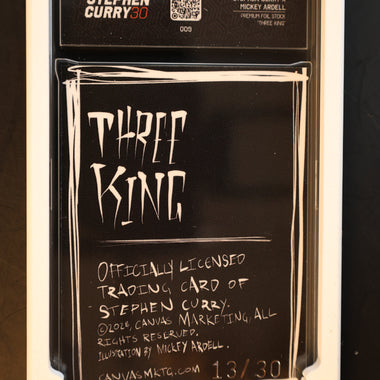 STEPHEN
CURRY30
009
MICKEY ARDELL
PREMIUM FOIL STOCK
"THREE KING"
THREE
KING
OFFICIALLY LICENSED
TRADING CARD OF
STEPHEN CURRY.
©2026, CANVAS MARKETING, ALL
RIGHTS RESERVED.
ILLUSTRATION BY MICKEY ARDELL.
CANVASMKTG.COM 13/30